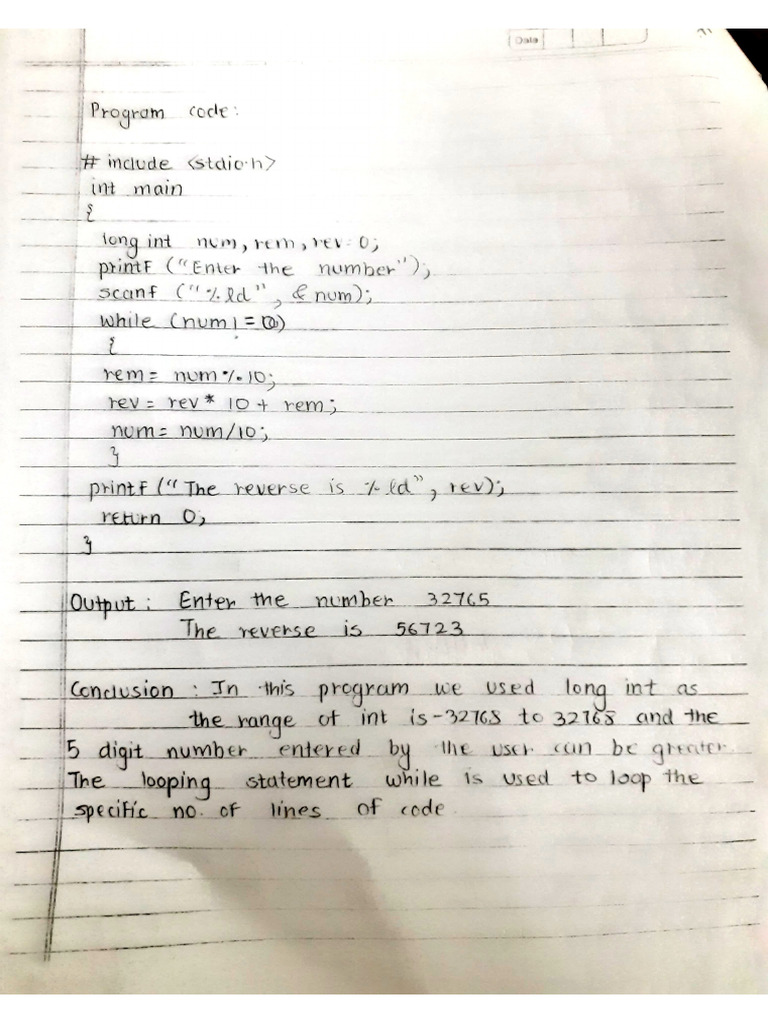 Date
Program code:
# include <stdio.h>
int main
{
long int num, rem, rev=0;
printf ("Enter the number");
scanf ("%ld", &num);
while (num!=0)
{
rem= num%10;
rev= rev* 10+ rem;
num= num/10;
}
printf ("The reverse is %ld", rev);
return 0;
}
Output: Enter the number 32765
The reverse is 56723
Conclusion: In this program we used long int as
the range of int is -32768 to 32768 and the
5 digit number entered by the user can be greater.
The looping statement while is used to loop the
specific no. of lines of code.